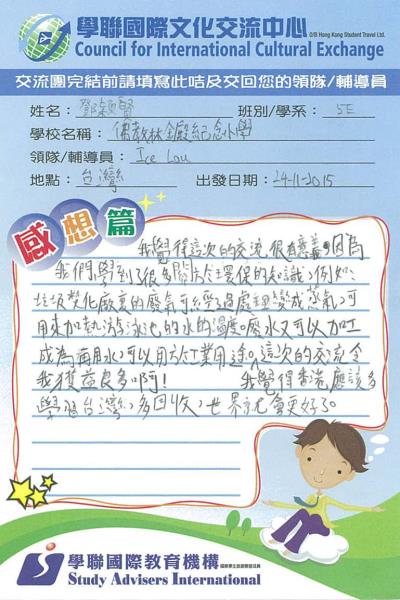 學聯國際文化交流中心
O/B Hong Kong Student Travel Ltd.
Council for International Cultural Exchange
交流團完結前請填寫此咭及交回您的領隊/輔導員
姓名：鄧穎賢 班別/學系：5E
學校名稱：儒教林金殿紀念小學
領隊/輔導員：Ice Lau
地點：台灣 出發日期：24-11-2015
感想篇
我覺得這次的交流很有意義，因為
我們學到了很多關於環保的知識，例如：
垃圾焚化廠裏的廢氣可經過處理變成蒸氣，可
用來加熱游泳池的水的溫度。廢水又可以加工
成為再用水，可以用於工業用途。這次的交流令
我獲益良多啊！ 我覺得香港應該多
學習台灣，多回收，世界就會更好了。
學聯國際教育機構
Study Advisers International